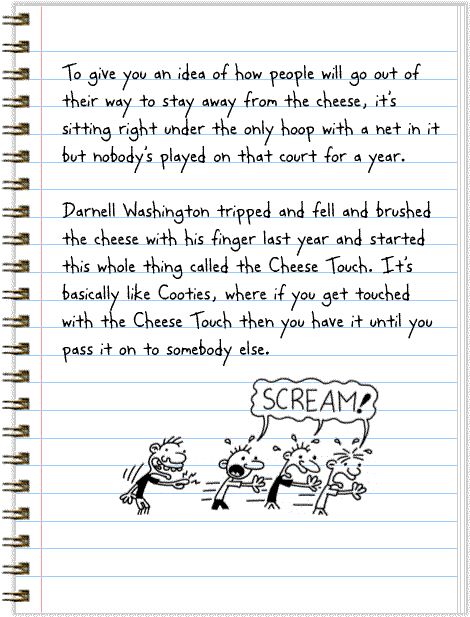 To give you an idea of how people will go out of
their way to stay away from the cheese, it's
sitting right under the only hoop with a net in it
but nobody's played on that court for a year.
Darnell Washington tripped and fell and brushed
the cheese with his finger last year and started
this whole thing called the Cheese Touch. It's
basically like Cooties, where if you get touched
with the Cheese Touch then you have it until you
pass it on to somebody else.
SCREAM!